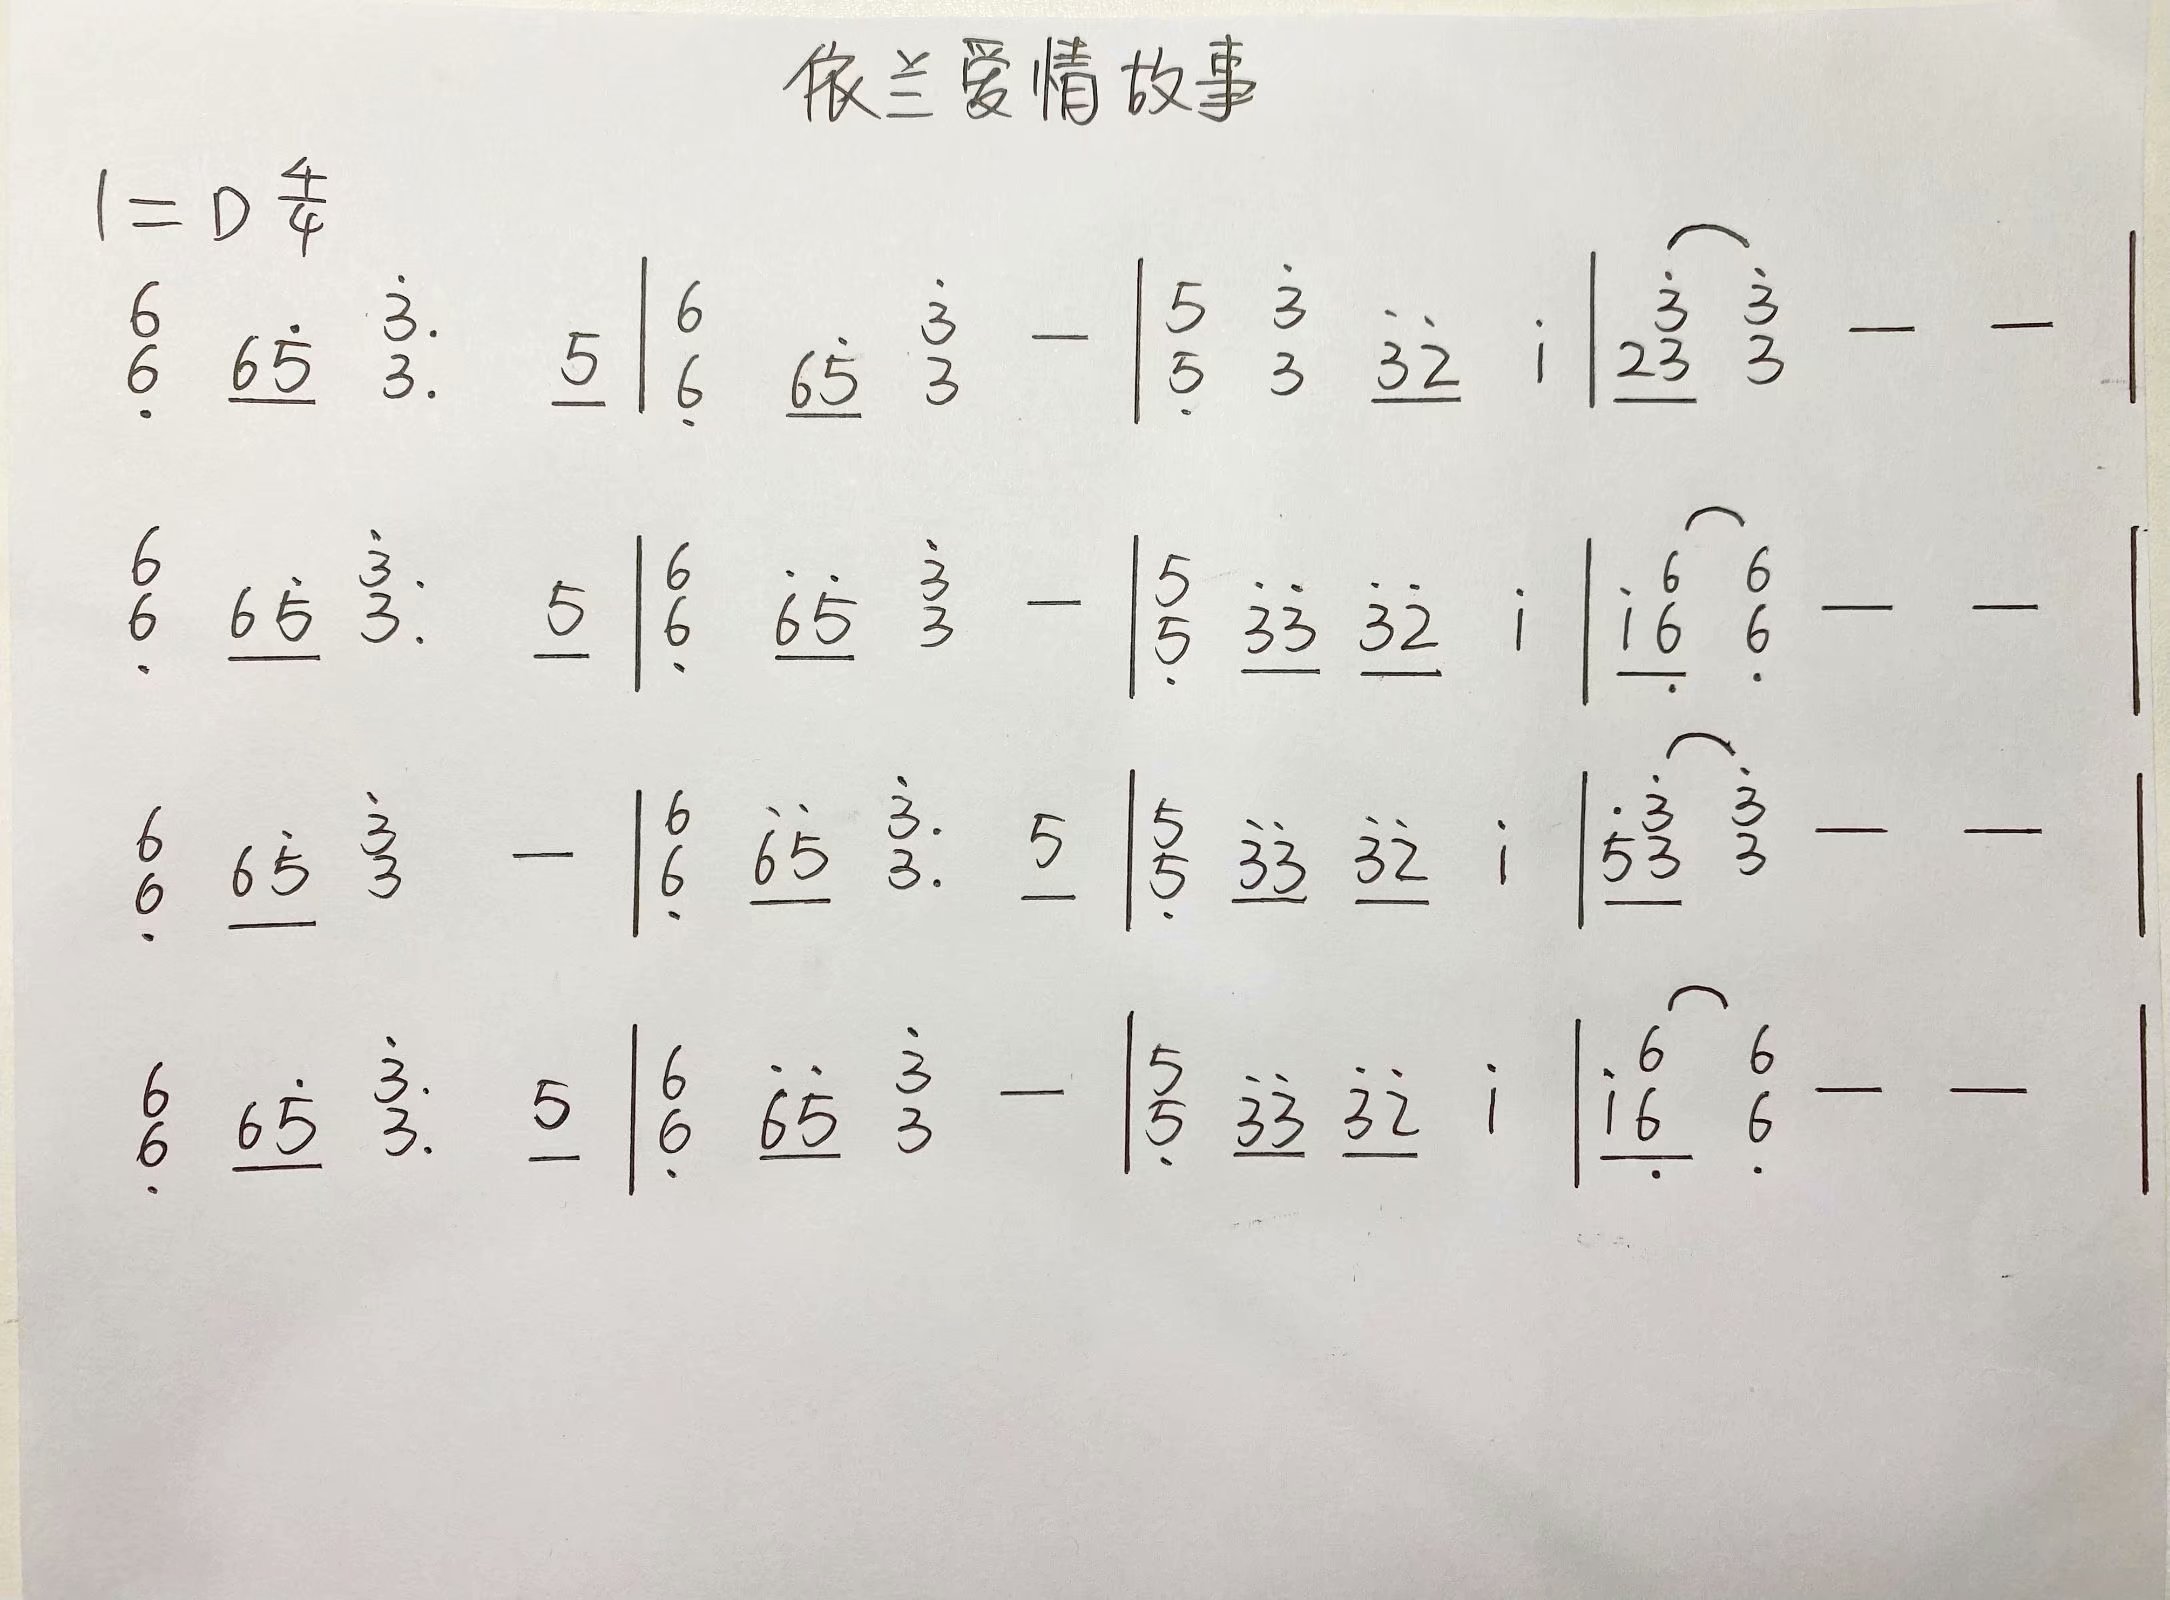 依兰爱情故事
1=D 4/4
6/6̣ 65̇ 3̇./3. 5 | 6/6̣ 65̇ 3̇/3 — | 5/5̣ 3̇/3 3̇2̇ i | 23̇/3 3̇/3 — — |
6/6̣ 65̇ 3̇./3. 5 | 6/6̣ 6̇5̇ 3̇/3 — | 5/5̣ 3̇3̇ 3̇2̇ i | i6/6̣ 6/6̣ — — |
6/6̣ 65̇ 3̇/3 — | 6/6̣ 6̇5̇ 3̇./3. 5 | 5/5̣ 3̇3̇ 3̇2̇ i | 5̇3̇/3 3̇/3 — — |
6/6̣ 65̇ 3̇./3. 5 | 6/6̣ 6̇5̇ 3̇/3 — | 5/5̣ 3̇3̇ 3̇2̇ i | i6/6̣ 6/6̣ — — |